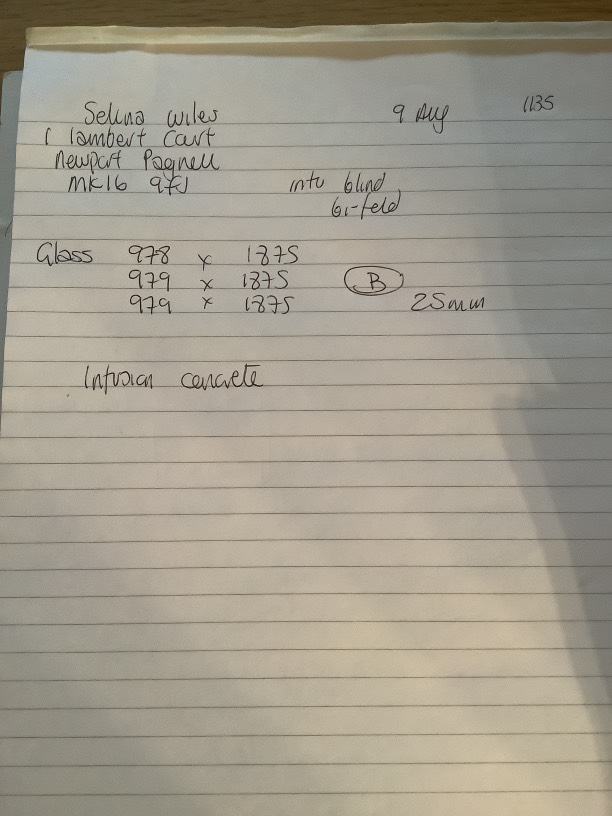 Selina wiles 9 Aug 1135
1 lambert Cart
Newport Pagnell
MK16
intu blind
bi-fold
Glass 978 x 1875
979 x 1875 B
979 x 1875 25mm
Infusion concrete